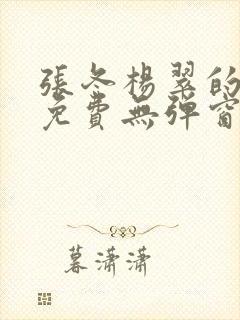 張冬楊翠的
免費無彈窗
暮瀟瀟